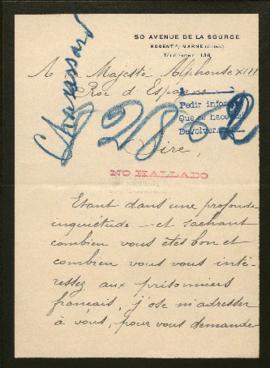 50 AVENUE DE LA SOURCE
NOGENT S/ MARNE (SEINE)
A Sa Majesté Alphonse XIII
Roi d'Espagne
Pedir infor
Que se
Devolver
28 2
Sire,
NO HALLADO
Etant dans une profonde
inquiétude et sachant
combien vous êtes bon et
combien vous vous inté-
ressez aux prisonniers
français, j'ose m'adresser
à vous, pour vous demander